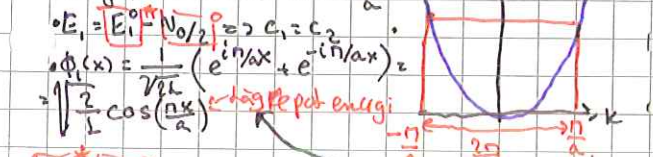 a
•E₁ = E₁⁰ - V₀/2 => C₁ = C₂
•ϕ₁(x) = 1/√2L (e^{iπ/ax} + e^{-iπ/ax}) =
= √2/L cos(πx/a) ← lägre pot energi
k
-π/a 2π π/a